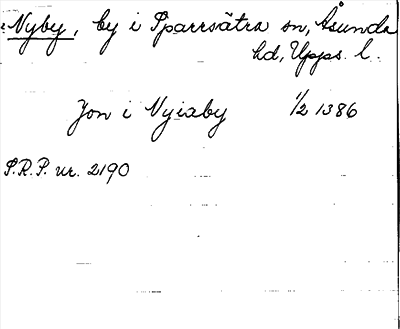 Nyby, by i Sparrsätra sn, Åsunda
hd, Upps. l.
Jon i Nyiaby 1/2 1386
S.R.P. nr. 2190